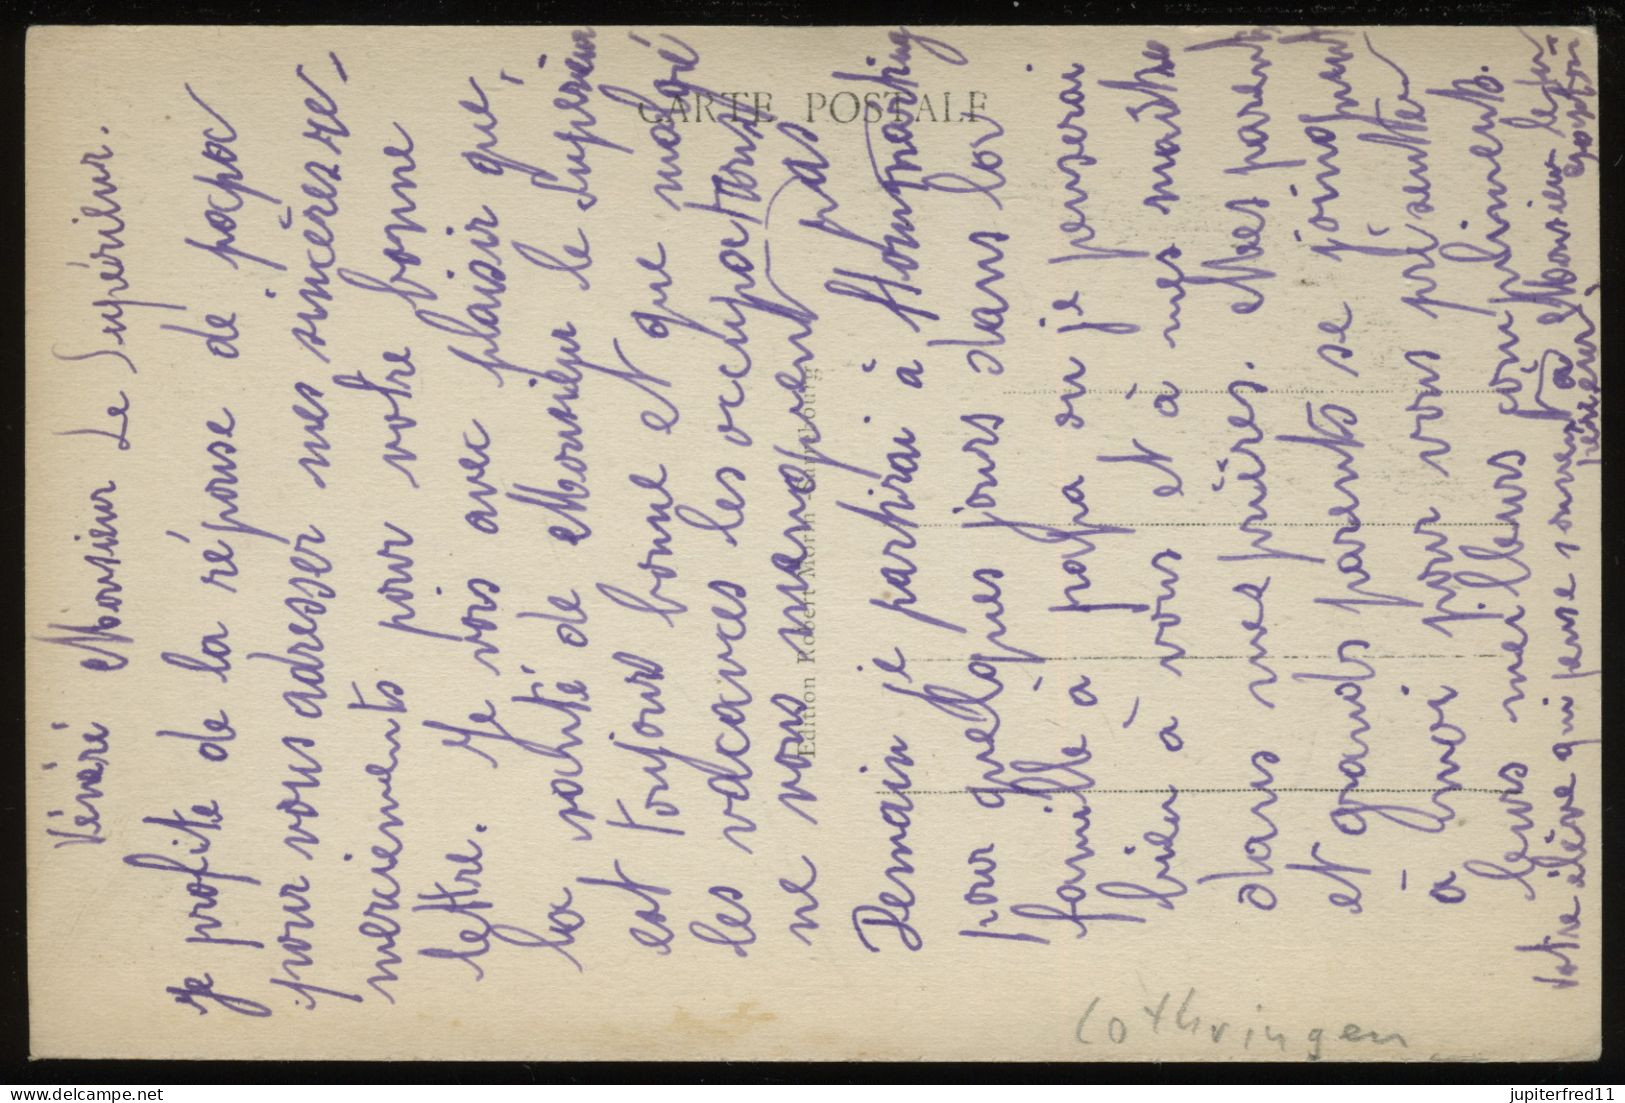 Vénéré Monsieur Le Supérieur.
Je profite de la réponse de papa
pour vous adresser mes sincères re-
merciements pour votre bonne
lettre. Je vois avec plaisir que
la santé de Monsieur le Supérieur
est toujours bonne et que malgré
les vacances les occupations
ne vous manquent pas
Demain je partirai à Hompatting
pour quelques jours dans la
famille à papa ou je penserai
bien à vous et à mes maîtres
dans mes prières. Mes parents
et grands parents se joignent
à moi pour vous présenter
leurs meilleurs compliments.
Votre élève qui pense souvent à Monsieur le Su-
périeur.
CARTE POSTALE
Edition Robert Morin
Lothringen
jupiterfred11